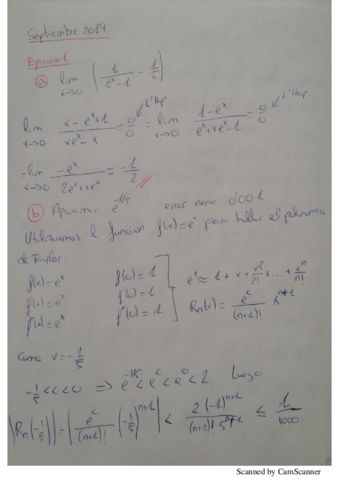 Septiembre 2019
Ejercicio 1
a) lim x→0 (1/(e^x-1) - 1/x)
lim x→0 (x-e^x+1)/(xe^x-x) = 0/0 L'Hop = lim x→0 (1-e^x)/(e^x+xe^x-1) = 0/0 L'Hop
= lim x→0 -e^x/(2e^x+xe^x) = -1/2
b) Aproximar e^(-1/5) error menor 0'001
Utilizamos la función f(x)=e^x para hallar el polinomio
de Taylor
f(x)=e^x f(0)=1
f'(x)=e^x f'(0)=1
f''(x)=e^x f''(0)=1
e^x ≈ 1 + x + x²/2! + ... + x^n/n!
Rn(x) = e^c/(n+1)! x^(n+1)
como x = -1/5
-1/5 < c < 0 ⇒ e^(-1/5) < e^c < e^0 < 2 Luego
|Rn(-1/5)| = |e^c/(n+1)! (-1/5)^(n+1)| < 2(-1)^(n+1)/((n+1)! 5^(n+1)) ≤ 1/1000
Scanned by CamScanner